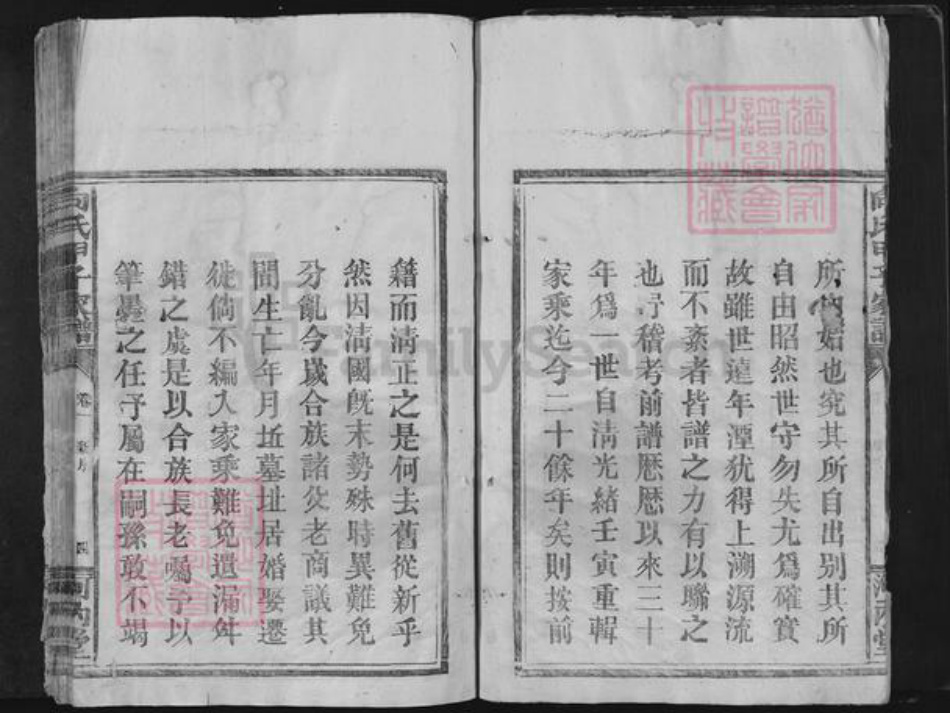 所由始也究其所自出别其所
自由昭然世守勿失尤爲確實
故雖世遠年湮犹得上溯源流
而不紊者皆譜之力有以聯之
也予稽考前譜歷歷以來三十
年爲一世自清光緒壬寅重輯
家乘迄今二十餘年矣則按前
向氏甲子家譜
河內堂
籍而清正之是何去舊從新乎
然因清國旣末勢殊時異難免
分亂今歲合族諸父老商議其
間生亡年月坵墓址居婚娶遷
徙倘不編入家乘難免遺漏舛
錯之虞是以合族長老囑予以
筆墨之任予屬在嗣孫敢不竭
向氏甲子家譜
卷一
河內堂
猶他家譜學會收藏
FamilySearch